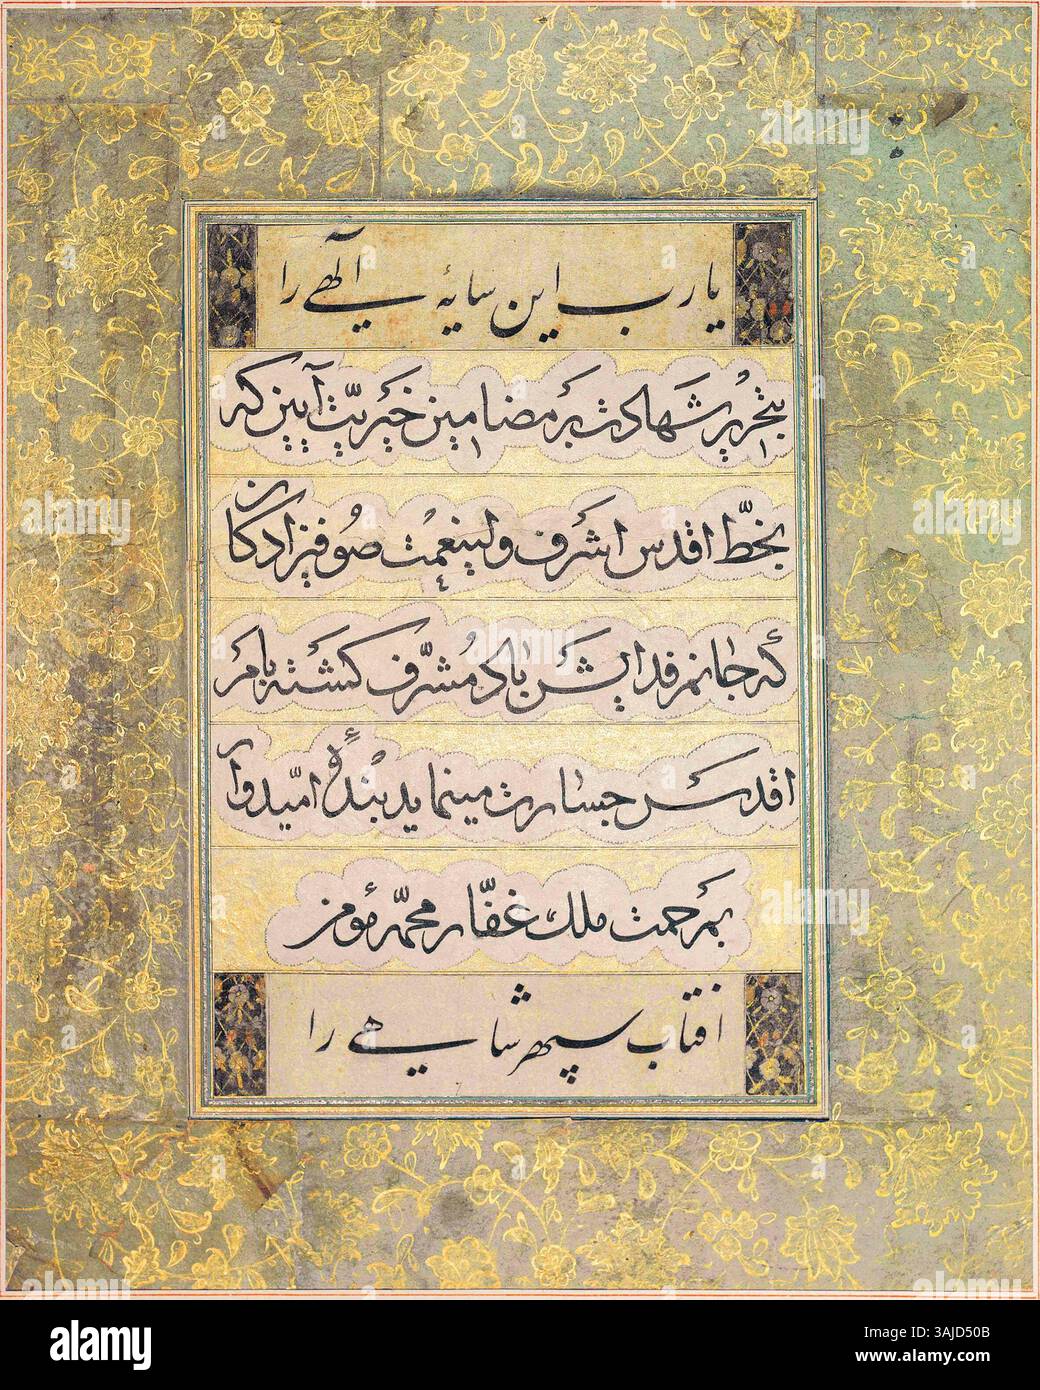 یا رب این سایهٔ آلهی را
بتحریر شهادت بر مضامین خیریت آیین که
بخط اقدس اشرف ولینعمت صوفیزادکان
که جانم فدایش باد مشرف کشته بامر
اقدس جسارت مینماید بندهٔ امیدوار
بمرحمت ملک غفار محمد مومن
افتاب سپهر شاهی را
alamy
Image ID: 3AJD50B
www.alamy.com